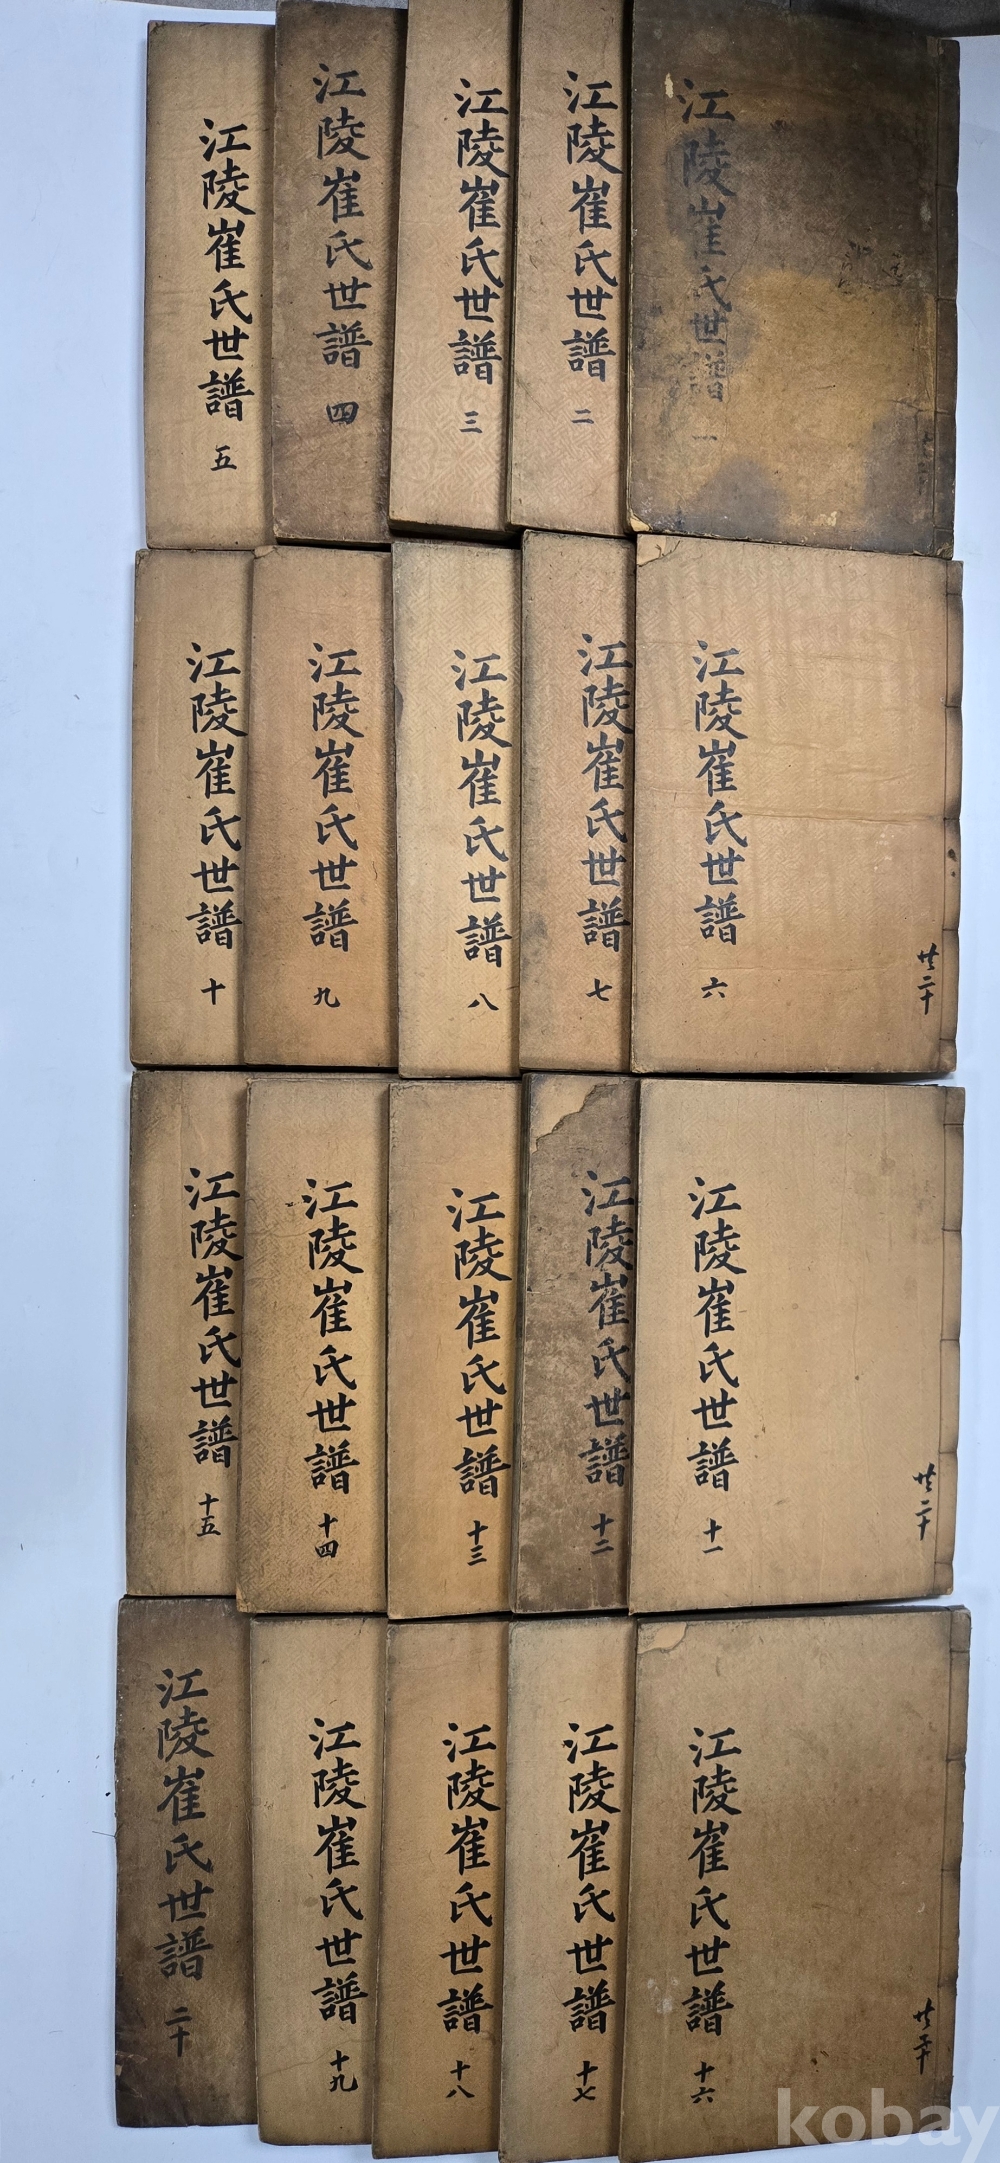 江陵崔氏世譜 一
江陵崔氏世譜 二
江陵崔氏世譜 三
江陵崔氏世譜 四
江陵崔氏世譜 五
江陵崔氏世譜 六
共二十
江陵崔氏世譜 七
江陵崔氏世譜 八
江陵崔氏世譜 九
江陵崔氏世譜 十
江陵崔氏世譜 十一
共二十
江陵崔氏世譜 十二
江陵崔氏世譜 十三
江陵崔氏世譜 十四
江陵崔氏世譜 十五
江陵崔氏世譜 十六
共二十
江陵崔氏世譜 十七
江陵崔氏世譜 十八
江陵崔氏世譜 十九
江陵崔氏世譜 二十
kobay